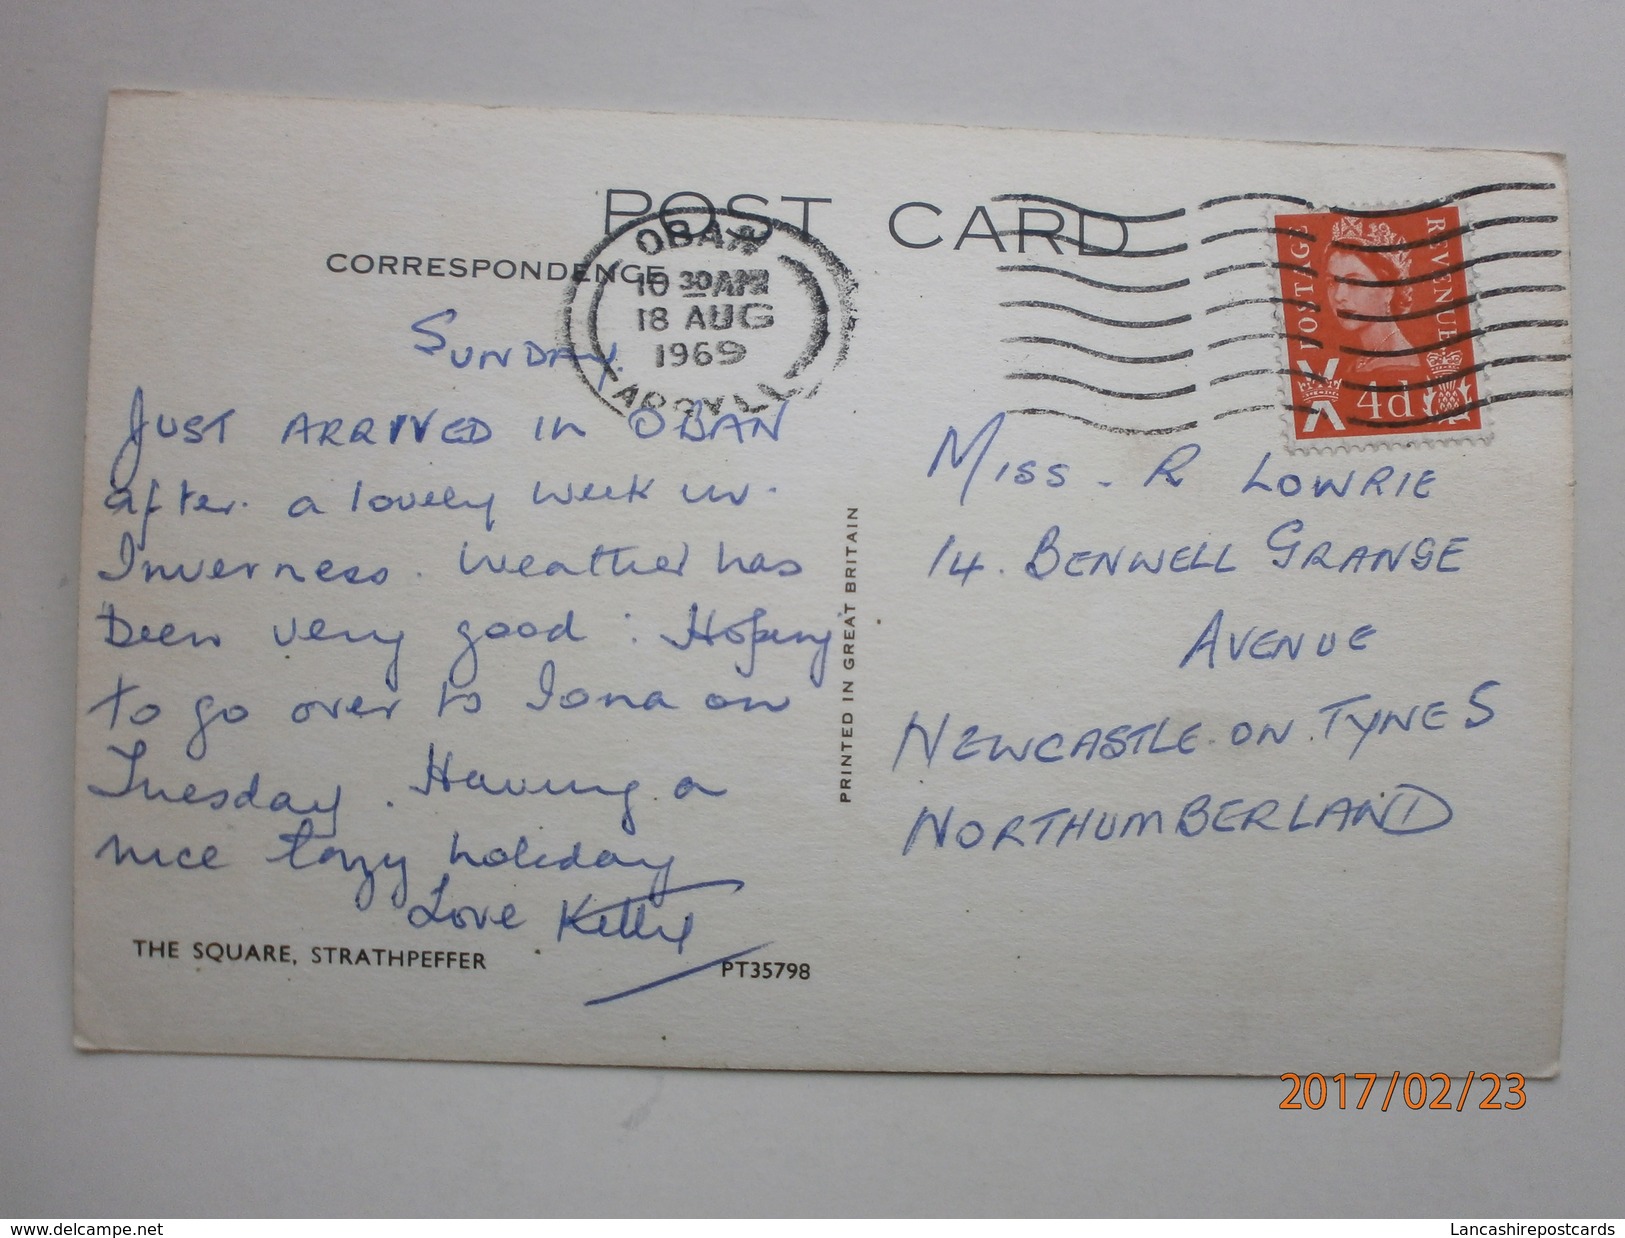 POST CARD
CORRESPONDENCE
OBAN
10 30 AM
18 AUG
1969
ARGYLL
POSTAGE
REVENUE
4d
SUNDAY.
JUST ARRIVED IN OBAN
after. a lovely week in.
Inverness. Weather has
been very good: Hoping
to go over to Iona on
Tuesday. Having a
nice lazy holiday
Love
THE SQUARE, STRATHPEFFER
PT35798
PRINTED IN GREAT BRITAIN
MISS - R LOWRIE
14. BENWELL GRANGE
AVENUE
NEWCASTLE. ON. TYNE 5
NORTHUMBERLAND
2017/02/23
www.delcampe.net
Lancashirepostcards